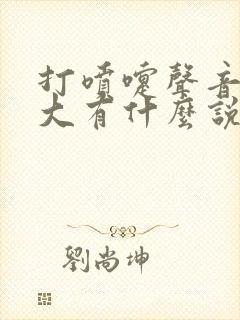 打噴嚏聲音
大有什麼說
劉尚坤